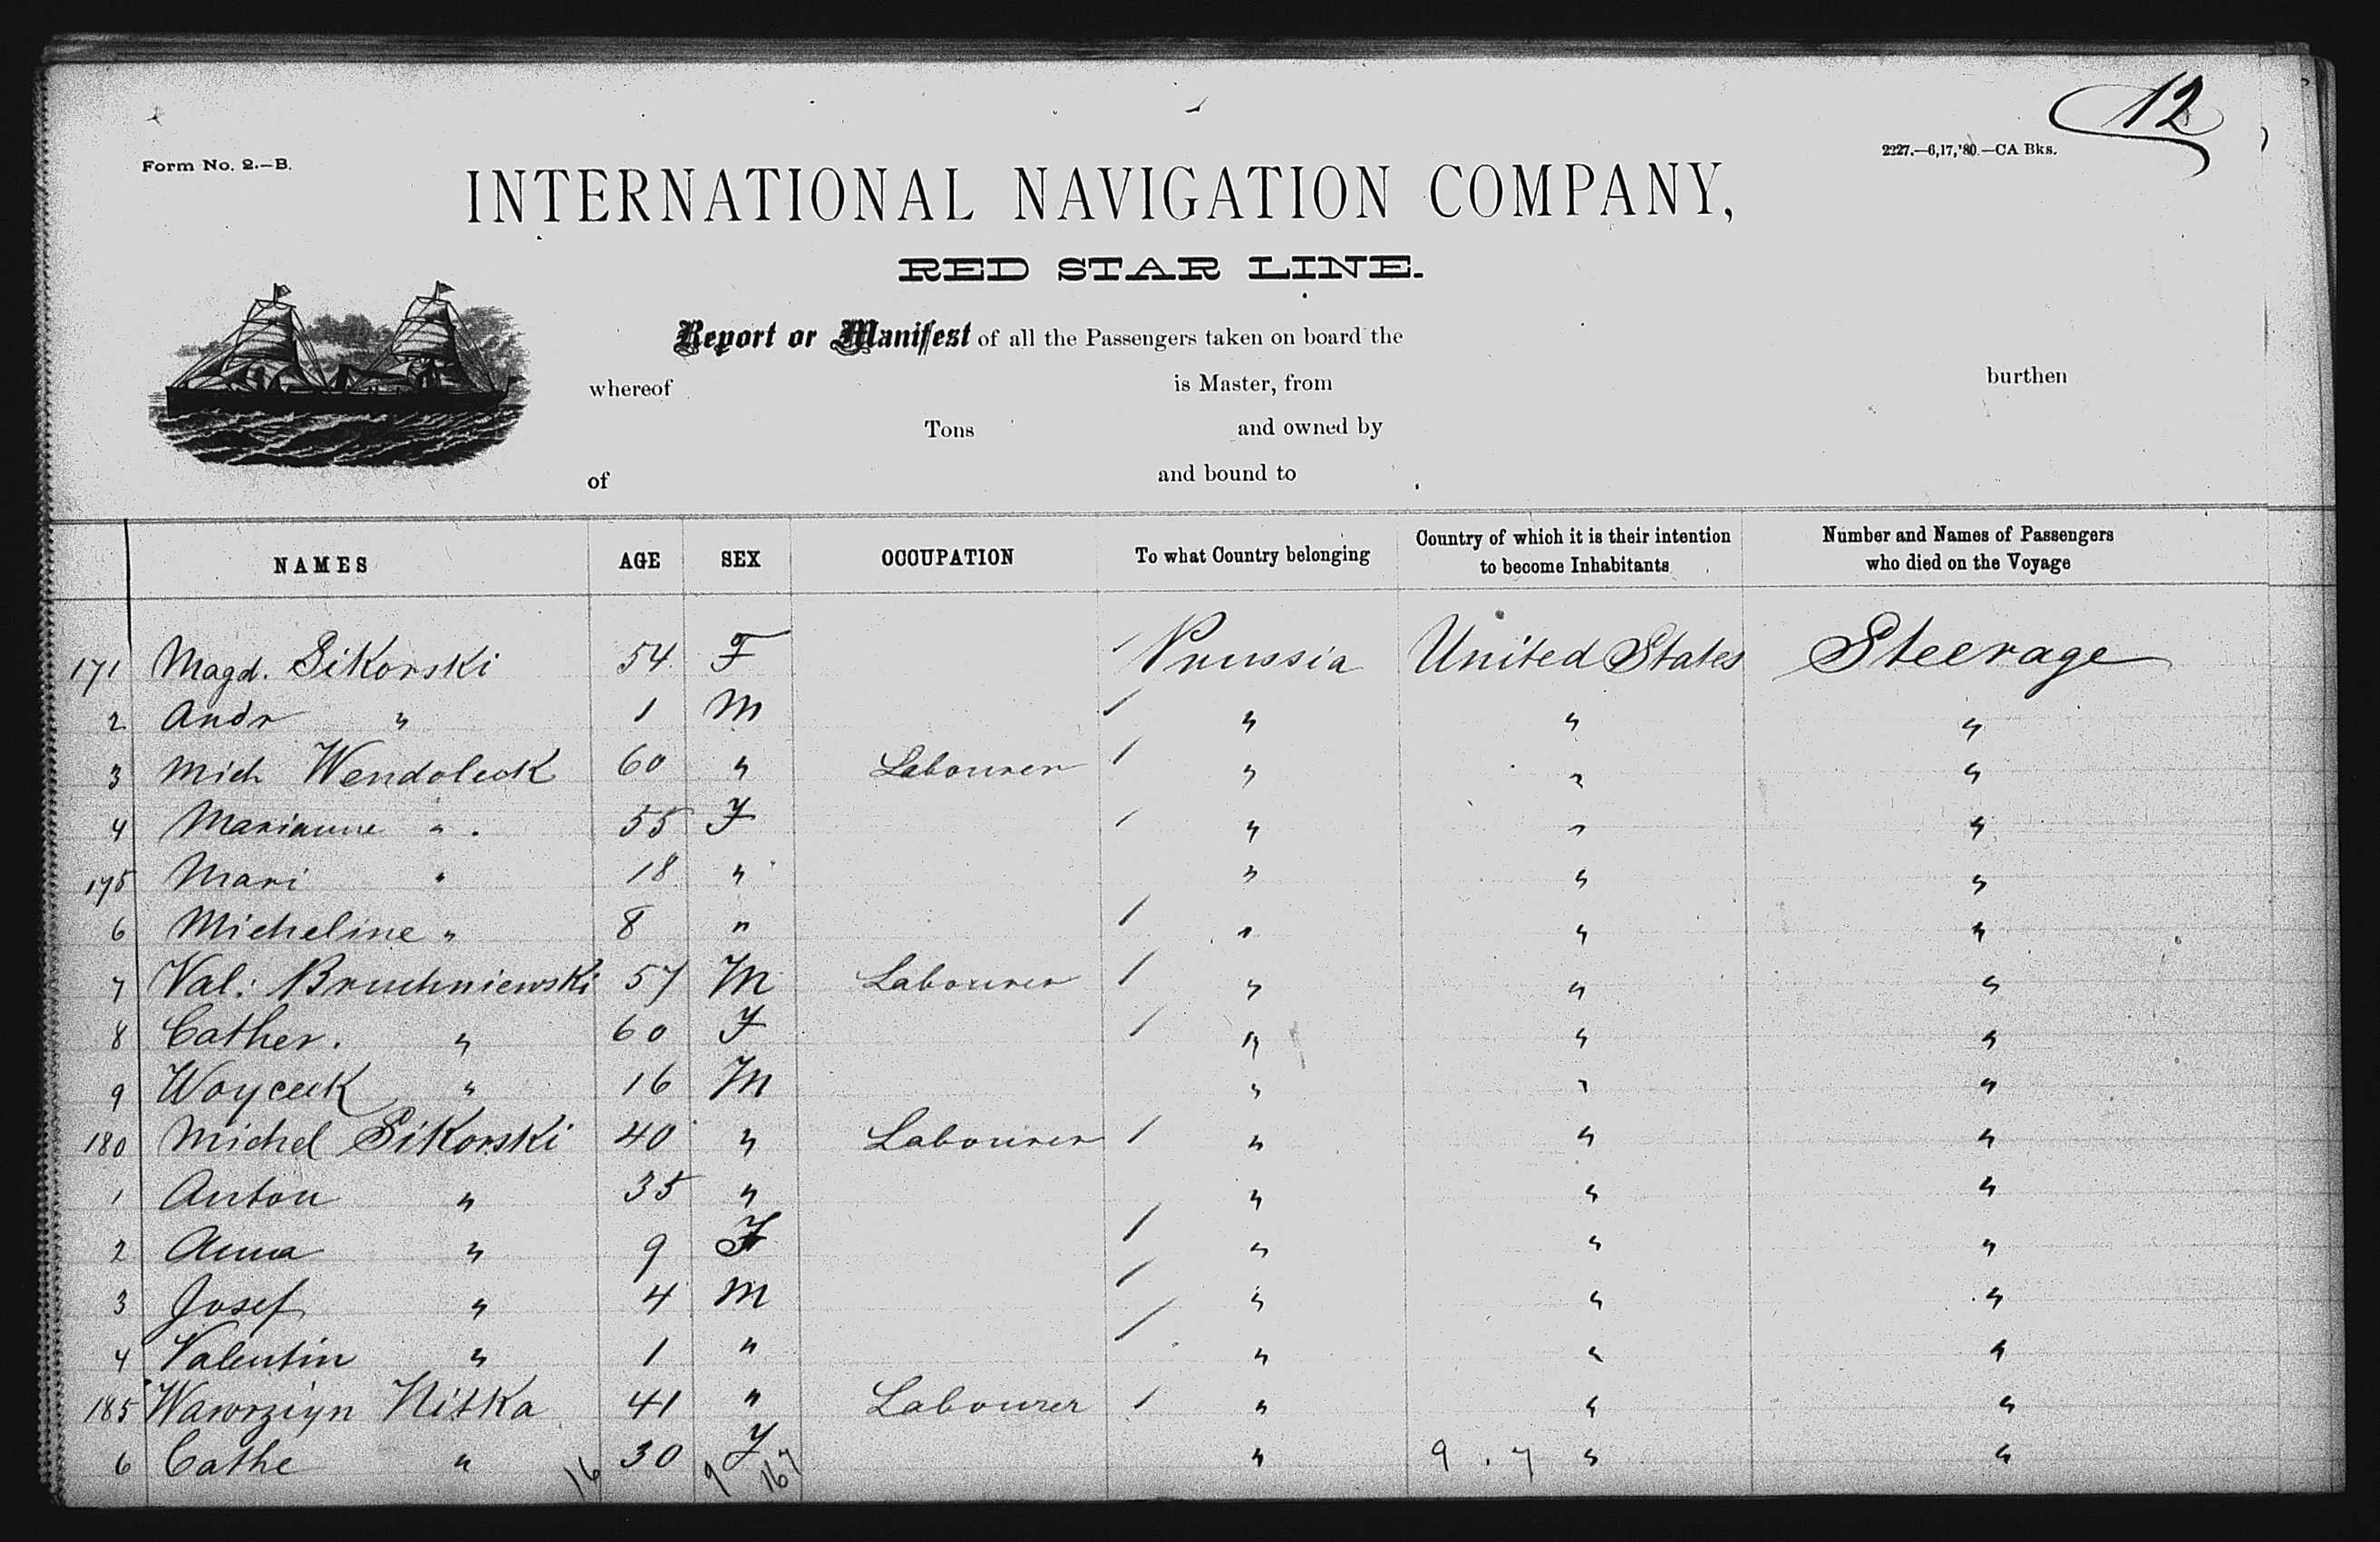 12
Form No. 2.—B.
2227.—6,17,'80.—CA Bks.
INTERNATIONAL NAVIGATION COMPANY,
RED STAR LINE.
Report or Manifest of all the Passengers taken on board the
whereof is Master, from burthen
Tons and owned by
of and bound to
NAMES AGE SEX OCCUPATION To what Country belonging Country of which it is their intention to become Inhabitants Number and Names of Passengers who died on the Voyage
171 Magd. Sikorski 54 F / Prussia United States Steerage
2 Andr " 1 M / " " "
3 Mich Wendoleck 60 " Labourer / " " "
4 Marianne " 55 F / " " "
175 Mari " 18 " " " "
6 Micheline " 8 " / " " "
7 Val: Bruchniewski 57 M Labourer / " " "
8 Cather. " 60 F / " " "
9 Woyceck " 16 M " " "
180 Michel Sikorski 40 " Labourer / " " "
1 Anton " 35 " " " "
2 Anna " 9 F / " " "
3 Josef " 4 M / " " "
4 Valentin " 1 " / " " "
185 Wawrziyn Nitka 41 " Labourer / " " "
6 Cathe " 30 F " 9 . 7 " "
16 9 167